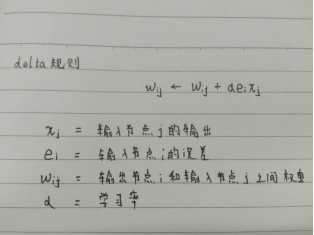 delta规则
wij ← wij + αeixj
xj = 输入节点j的输出
ei = 输入节点i的误差
wij = 输出节点i和输入节点j之间权重
α = 学习率